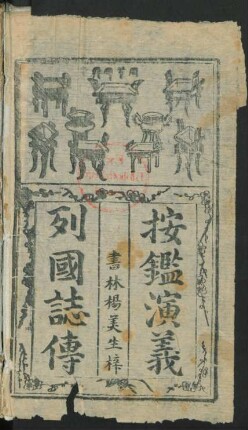 按鑑演義
書林楊美生梓
列國誌傳